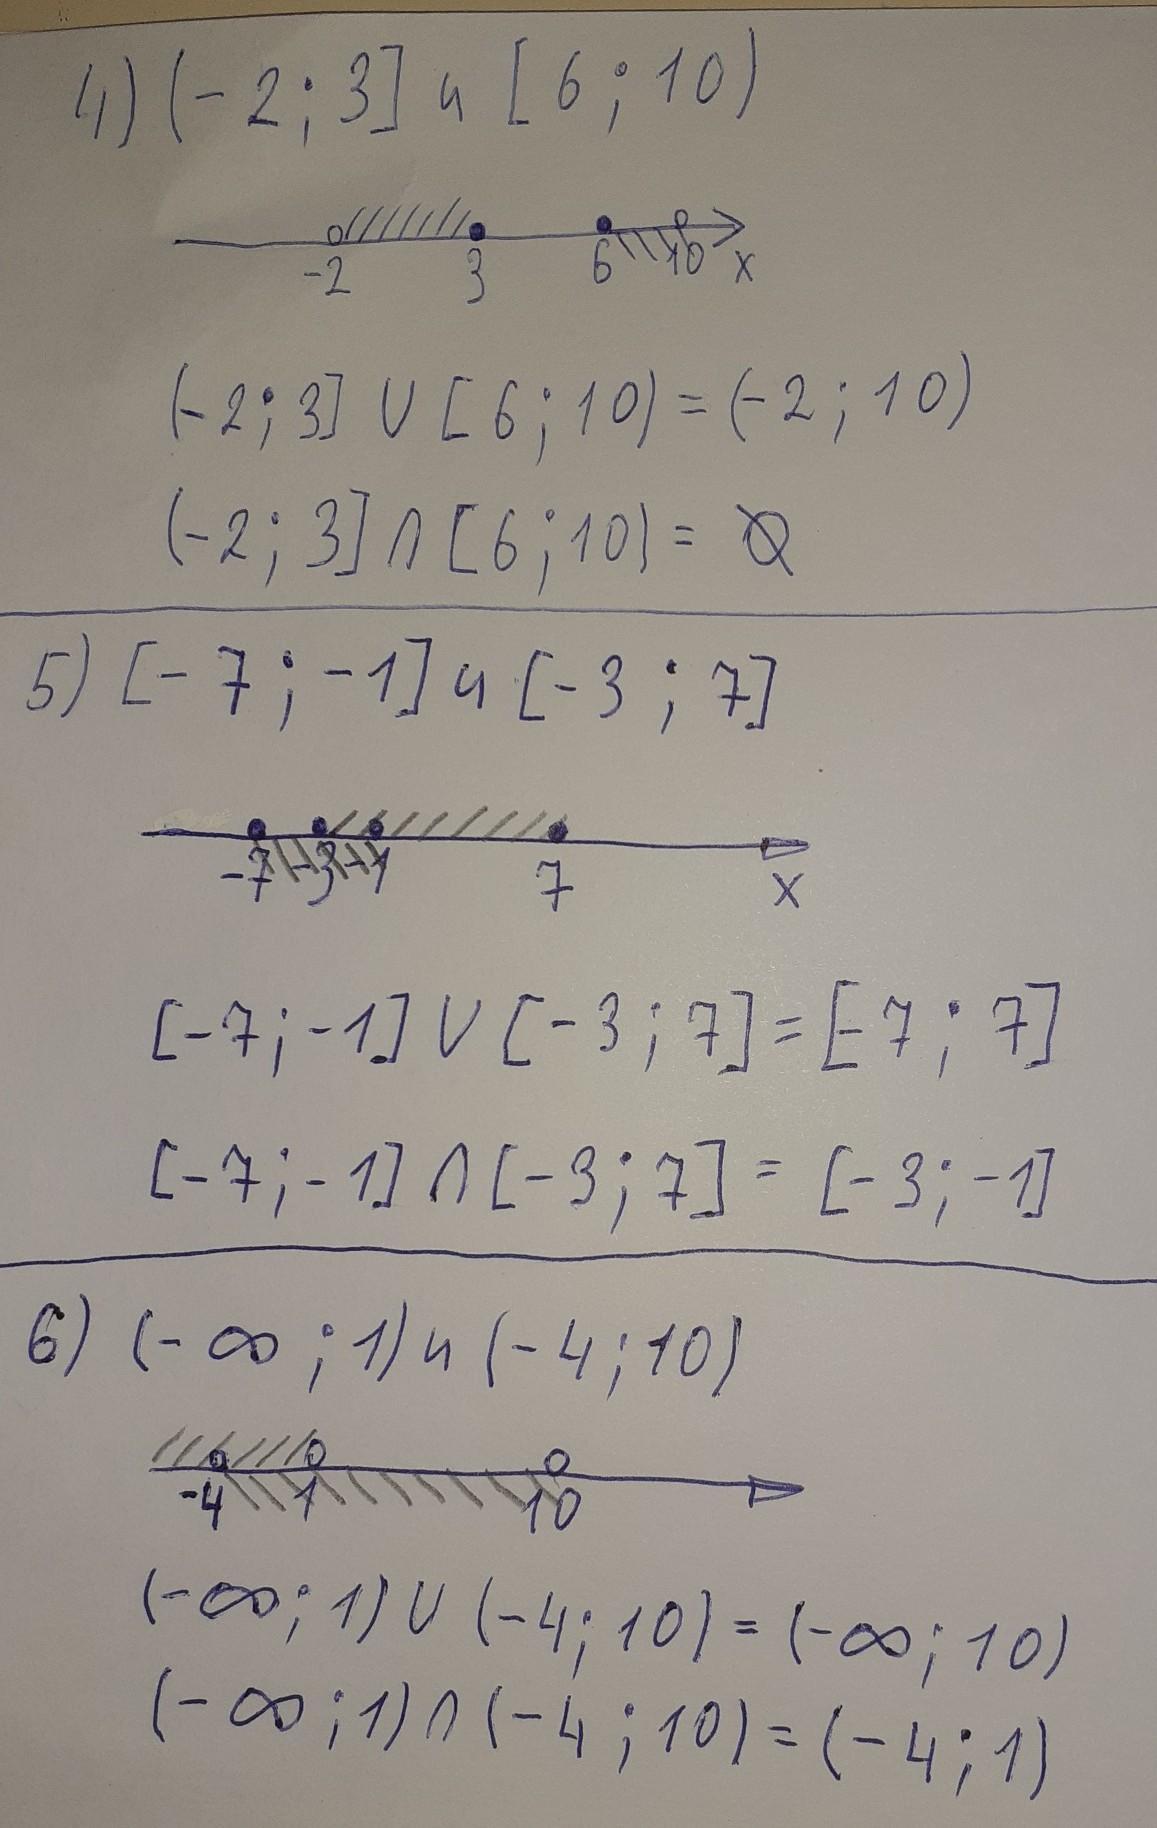 4) (-2; 3] и [6; 10)
-2 3 6 10 x
(-2; 3] ∪ [6; 10) = (-2; 10)
(-2; 3] ∩ [6; 10) = ∅
5) [-7; -1] и [-3; 7]
-7 -3 -1 7 x
[-7; -1] ∪ [-3; 7] = [-7; 7]
[-7; -1] ∩ [-3; 7] = [-3; -1]
6) (-∞; 1) и (-4; 10)
-4 1 10
(-∞; 1) ∪ (-4; 10) = (-∞; 10)
(-∞; 1) ∩ (-4; 10) = (-4; 1)